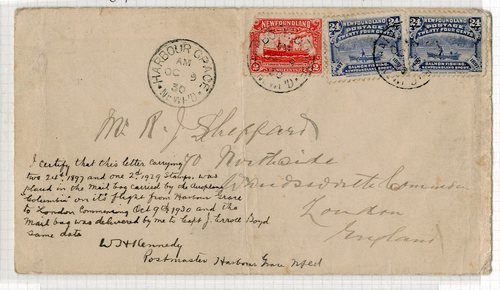 HARBOUR GRACE
AM
OC 9
30
N'F'L'D
NEWFOUNDLAND
2
24 NEWFOUNDLAND 24
POSTAGE
TWENTY FOUR CENTS
SALMON FISHING
24 NEWFOUNDLAND 24
POSTAGE
TWENTY FOUR CENTS
SALMON FISHING
Mr R. J. Sheppard
70 Northside
Wandsworth Common
London
England
I certify that this letter carrying
two 24¢ 1897 and one 2¢ 1929 stamps, was
placed in the mail bag carried by the Aeroplane
"Columbia" on its flight from Harbour Grace
to London Commencing Oct 9th 1930 and the
Mail bag was delivered by me to Capt J. Erroll Boyd
same date
W H Kennedy
Postmaster Harbour Grace Nfld